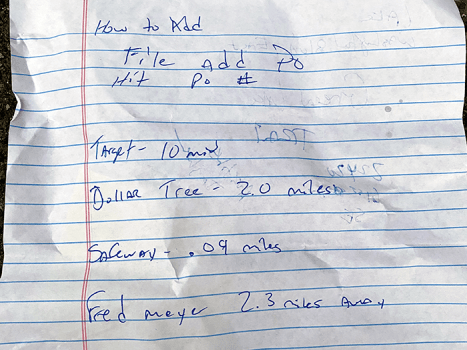 How to Add
File Add Po
Hit Po #
Target - 10 min
Dollar Tree - 2.0 miles
Safeway - .09 miles
Fred meyer 2.3 miles Away